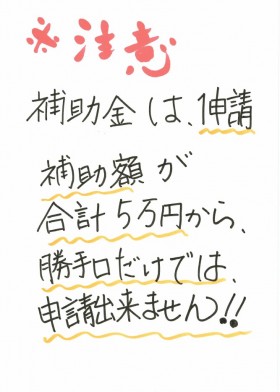 ※注意
補助金は、1申請
補助額が
合計5万円から、
勝手口だけでは、
申請出来ません!!